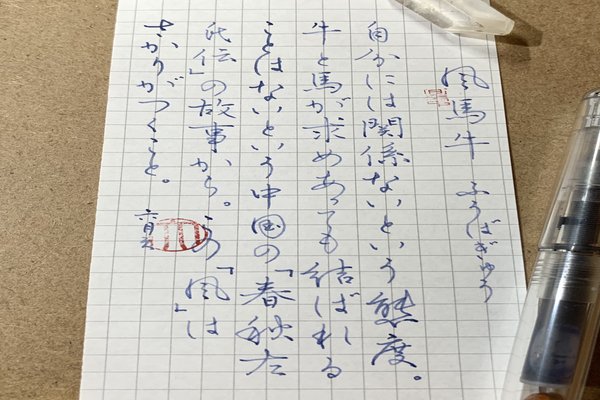 風馬牛 ふうばぎゅう
自分には関係ないという態度。
牛と馬が求めあっても結ばれる
ことはないという中国の「春秋左
氏伝」の故事から。この「風」は
さかりがつくこと。